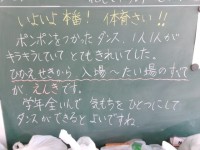 いよいよ本番! 体育さい!!
ポンポンをつかったダンス、1人1人が
キラキラしていてとてもきれいでした。
ひかえせきから入場〜たい場のすべて
がえんぎです。
学年全いんで気もちをひとつにして
ダンスができるとよいですね